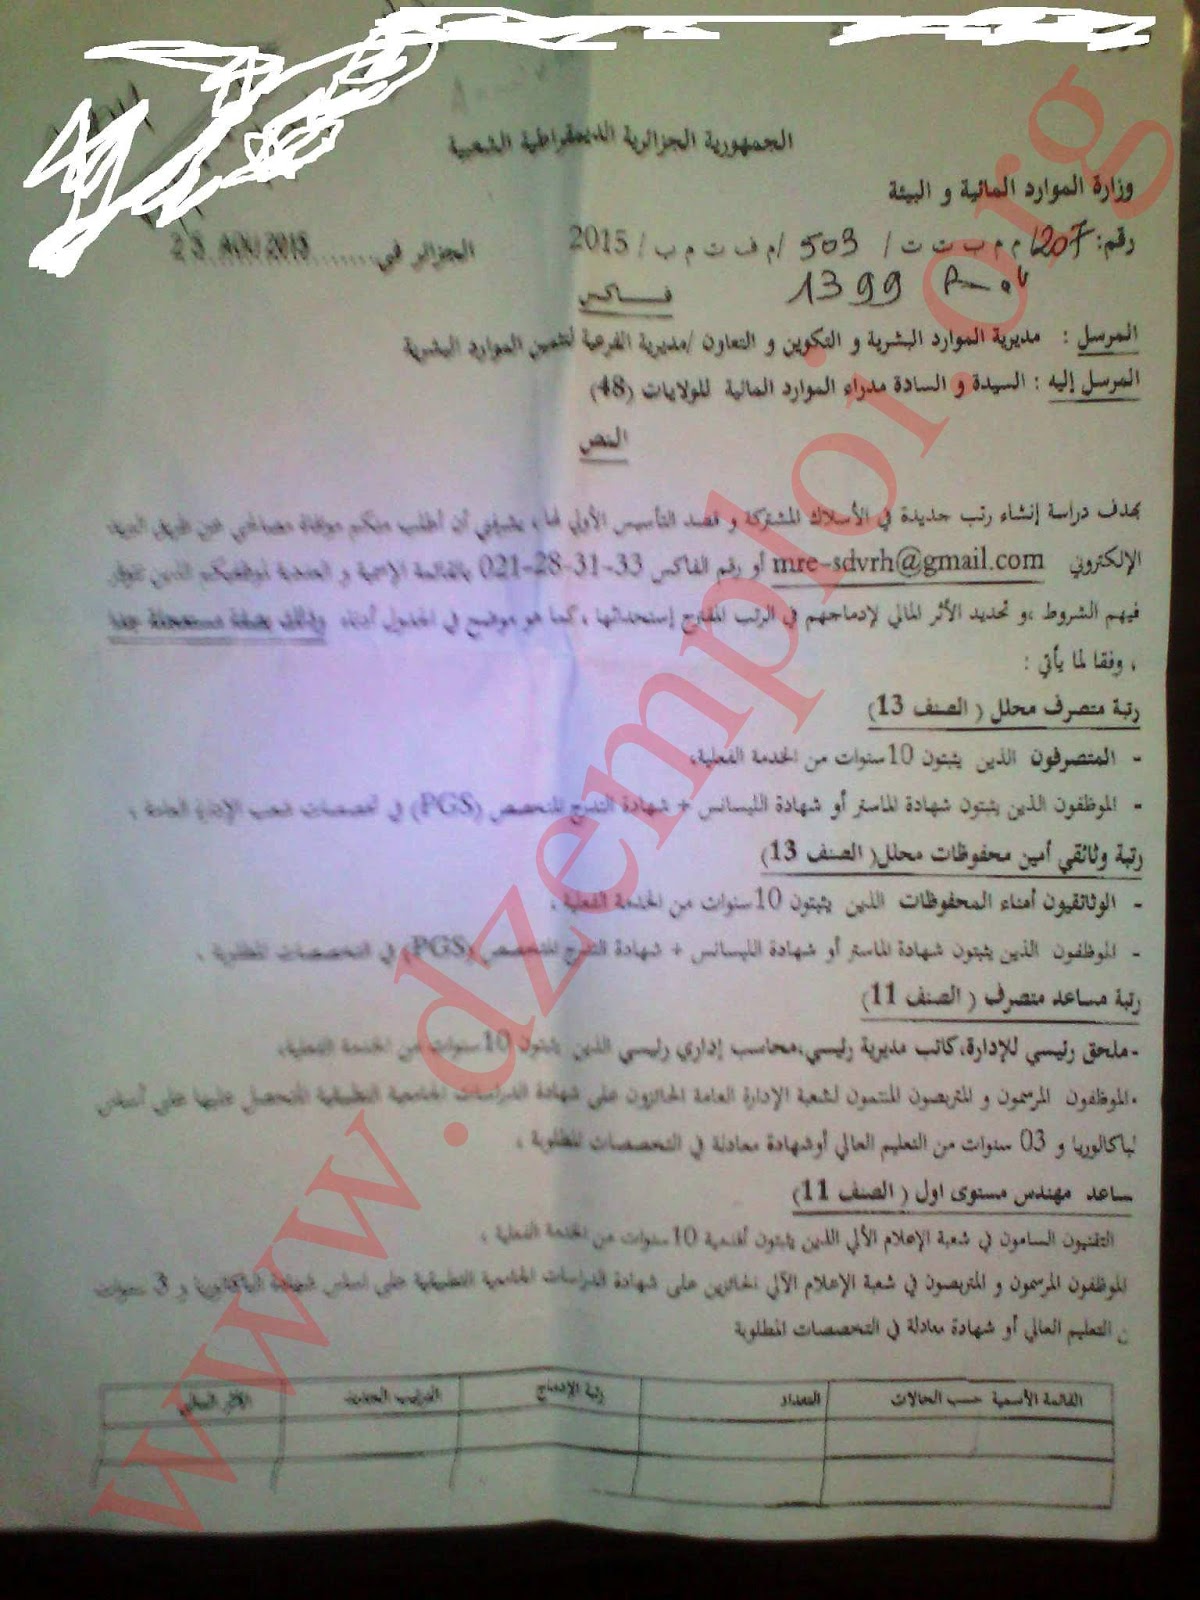 الجمهورية الجزائرية الديمقراطية الشعبية
وزارة الموارد المائية و البيئة
رقم: 1207/ م م ب ت ت / 503 /م ف ت م ب / 2015
الجزائر في 23 AOU 2015
1399
فــاكس
المرسل : مديرية الموارد البشرية و التكوين و التعاون /مديرية الفرعية لتثمين الموارد البشرية
المرسل إليه : السيدة و السادة مدراء الموارد المائية للولايات (48)
النص
بهدف دراسة إنشاء رتب جديدة في الأسلاك المشتركة و قصد التأسيس الأولي لها ، يشرفني أن أطلب منكم موافاة مصالحي عن طريق البريد
الإلكتروني mre-sdvrh@gmail.com أو رقم الفاكس 33-31-28-021 بالقائمة الإسمية و العددية لموظفيكم الذين تتوفر
فيهم الشروط ،و تحديد الأثر المالي لإدماجهم في الرتب المقترح إستحداثها ، كما هو موضح في الجدول أدناه وذلك بصفة مستعجلة جدا
، وفقا لما يأتي :
رتبة متصرف محلل ( الصنف 13)
- المتصرفون الذين يثبتون 10سنوات من الخدمة الفعلية،
- الموظفون الذين يثبتون شهادة الماستر أو شهادة الليسانس + شهادة التدرج المتخصص (PGS) في تخصصات شعب الإدارة العامة ،
رتبة وثائقي أمين محفوظات محلل( الصنف 13)
- الوثائقيون أمناء المحفوظات الذين يثبتون 10سنوات من الخدمة الفعلية ،
- الموظفون الذين يثبتون شهادة الماستر أو شهادة الليسانس + شهادة التدرج المتخصص (PGS) في التخصصات المطلوبة ،
رتبة مساعد متصرف ( الصنف 11)
-ملحق رئيسي للإدارة،كاتب مديرية رئيسي،محاسب إداري رئيسي الذين يثبتون 10سنوات من الخدمة الفعلية،
-الموظفون المرسمون و المتربصون المنتمون لشعبة الإدارة العامة الحائزون على شهادة الدراسات الجامعية التطبيقية المتحصل عليها على أساس
لباكالوريا و 03 سنوات من التعليم العالي أوشهادة معادلة في التخصصات المطلوبة ،
ساعد مهندس مستوى اول ( الصنف 11)
التقنيون السامون في شعبة الإعلام الألي الذين يثبتون أقدمية 10سنوات من الخدمة الفعلية ،
الموظفون المرسمون و المتربصون في شعبة الإعلام الآلي الحائزين على شهادة الدراسات الجامعية التطبيقية على أساس شهادة الباكالوريا و 3 سنوات
ن التعليم العالي أو شهادة معادلة في التخصصات المطلوبة
القائمة الأسمية حسب الحالات التعداد رتبة الإدماج الترتيب الجديد الأثر المالي
www.dzemploi.org